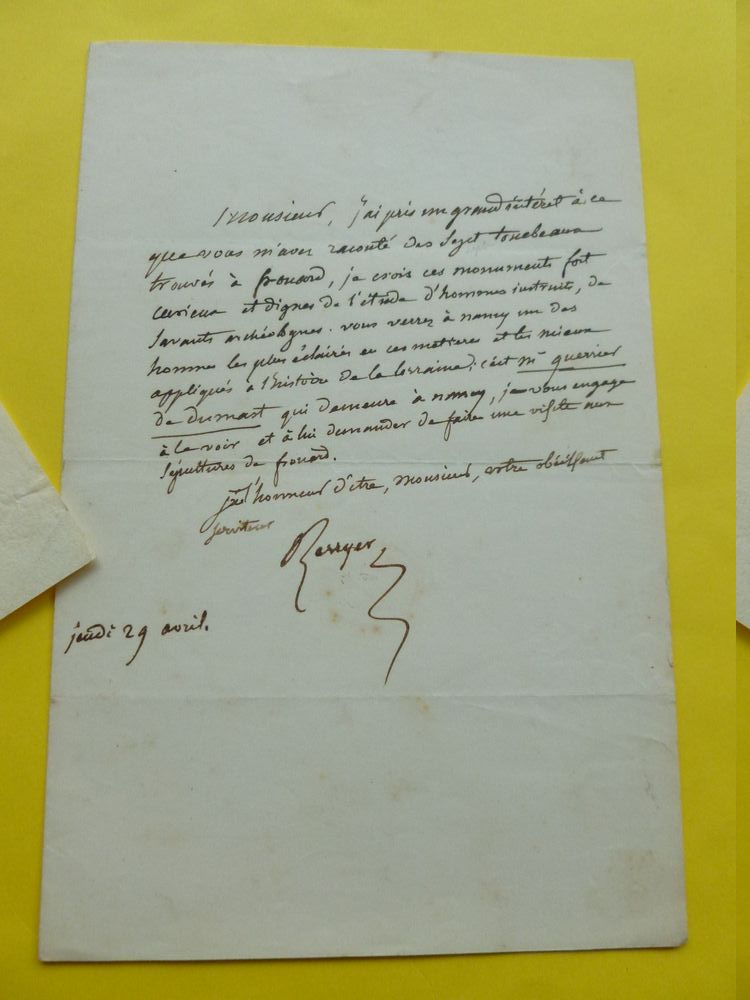 Monsieur, j'ai pris un grand intérêt à ce
que vous m'avez raconté des sept tombeaux
trouvés à frouard, je crois ces monuments fort
curieux et dignes de l'étude d'hommes instruits, de
savants archéologues. vous verrez à nancy un des
hommes les plus éclairés en ces matieres et les mieux
appliqués à l'histoire de la lorraine; c'est mr guerrier
de dumast qui demeure à nancy, je vous engage
à le voir et à lui demander de faire une visite aux
sépultures de frouard.
j'ai l'honneur d'être, monsieur, votre obéissant
serviteur
Berryer
jeudi 29 avril.